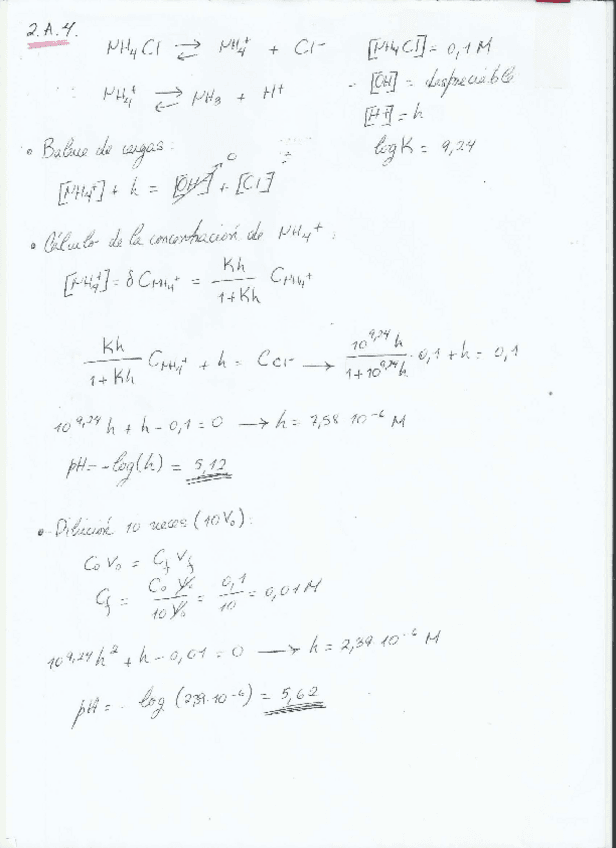 2.A.4.
NH₄Cl ⇄ NH₄⁺ + Cl⁻ [NH₄Cl] = 0,1 M
NH₄⁺ ⇄ NH₃ + H⁺ - [OH] = despreciable
[H⁺] = h
log K = 9,24
• Balance de cargas:
[NH₄⁺] + h = [OH⁻] + [Cl⁻] 0
• Cálculo de la concentración de NH₄⁺:
[NH₄⁺] = δ C_NH₄⁺ = Kh / (1 + Kh) C_NH₄⁺
Kh / (1 + Kh) C_NH₄⁺ + h = C_Cl⁻ → 10^9,24 h / (1 + 10^9,24 h) · 0,1 + h = 0,1
10^9,24 h + h - 0,1 = 0 → h = 7,58 10⁻⁶ M
pH = -log(h) = 5,12
• Dilución 10 veces (10V₀):
C₀V₀ = C_f V_f
C_f = C₀ V₀ / 10V₀ = 0,1 / 10 = 0,01 M
10^9,24 h² + h - 0,01 = 0 → h = 2,39 10⁻⁶ M
pH = - log (2,39·10⁻⁶) = 5,62